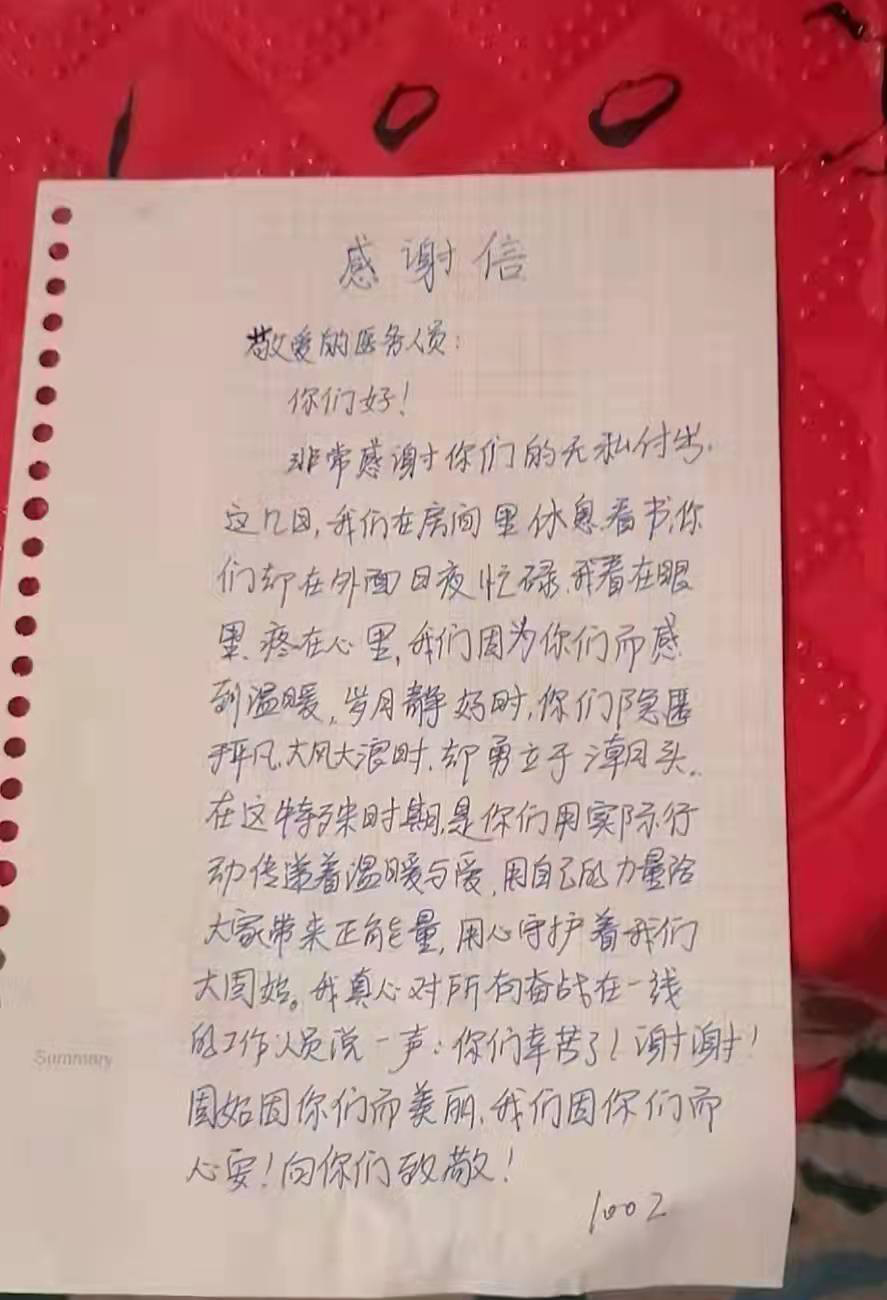 100
感谢信
敬爱的医务人员:
你们好!
非常感谢你们的无私付出.
这几日,我们在房间里休息看书,你
们却在外面日夜忙碌,我看在眼
里.疼在心里,我们因为你们而感
到温暖,岁月静好时,你们隐匿
平凡,大风大浪时.却勇立于潮头.
在这特殊时期,是你们用实际行
动传递着温暖与爱,用自己的力量给
大家带来正能量,用心守护着我们
大固始。我真心对所有奋战在一线
的工作人员说一声:你们辛苦了!谢谢!
固始因你们而美丽,我们因你们而
心安!向你们致敬!
1002
Summary